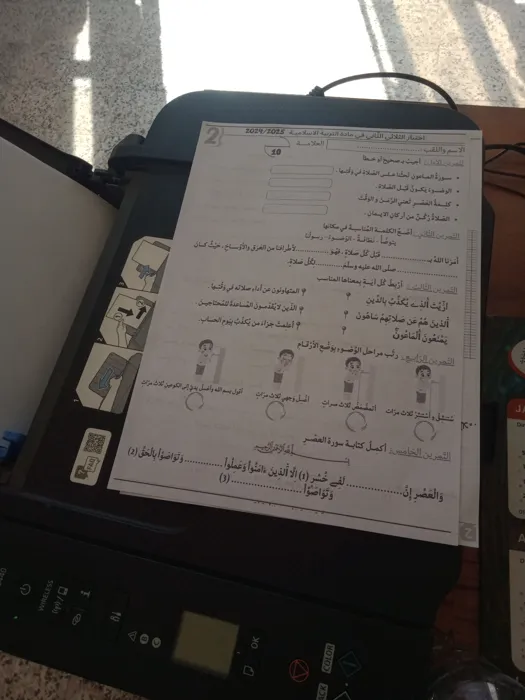 2
اختبار الثلاثي الثاني في مادة التربية الإسلامية 2024/2025
الاسم واللقب
العلامة
10
التمرين الأول: أجيب بـ صحيح أو خطأ
• سورة الماعون تحثنا على الصلاة في وقتها.
• الوضوء يكون قبل الصلاة.
• كلمة العصر تعني الزمن و الوقت
• الصلاة ركن من أركان الإيمان.
التمرين الثاني: أضع الكلمة المناسبة في مكانها
يتوضأ - نظافة - الوضوء - رسولنا
أمرنا الله بـ ............ قبل كل صلاة، فهو ............ لأطرافنا من العرق والأوساخ، حيث كان
............ صلى الله عليه وسلم ............ لكل صلاة.
التمرين الثالث: أربط كل آية بمعناها المناسب
أَرَيْتَ الَّذِي يُكَذِّبُ بِالدِّينِ
المتهاونون عن أداء صلاته في وقتها
الَّذِينَ هُمْ عَن صَلَاتِهِمْ سَاهُونَ
الذين لا يقدمون المساعدة للمحتاجين.
يَمْنَعُونَ الْمَاعُونَ
أعلمت جزاء من يكذب بيوم الحساب.
التمرين الرابع: رتب مراحل الوضوء بوضع الأرقام
أقول بسم الله وأغسل يدي إلى الكوعين ثلاث مرات
أغسل وجهي ثلاث مرات
أتمضمض ثلاث مرات
أستنشق و أستنثر ثلاث مرات
التمرين الخامس: أكمل كتابة سورة العصر
وَالْعَصْرِ إِنَّ ............ لَفِي خُسْرٍ (1) إِلَّا الَّذِينَ ءَامَنُوا وَعَمِلُوا ............ وَتَوَاصَوْا بِالْحَقِّ (2)
وَتَوَاصَوْا ............ (3)
WIRELESS
OK
COLOR